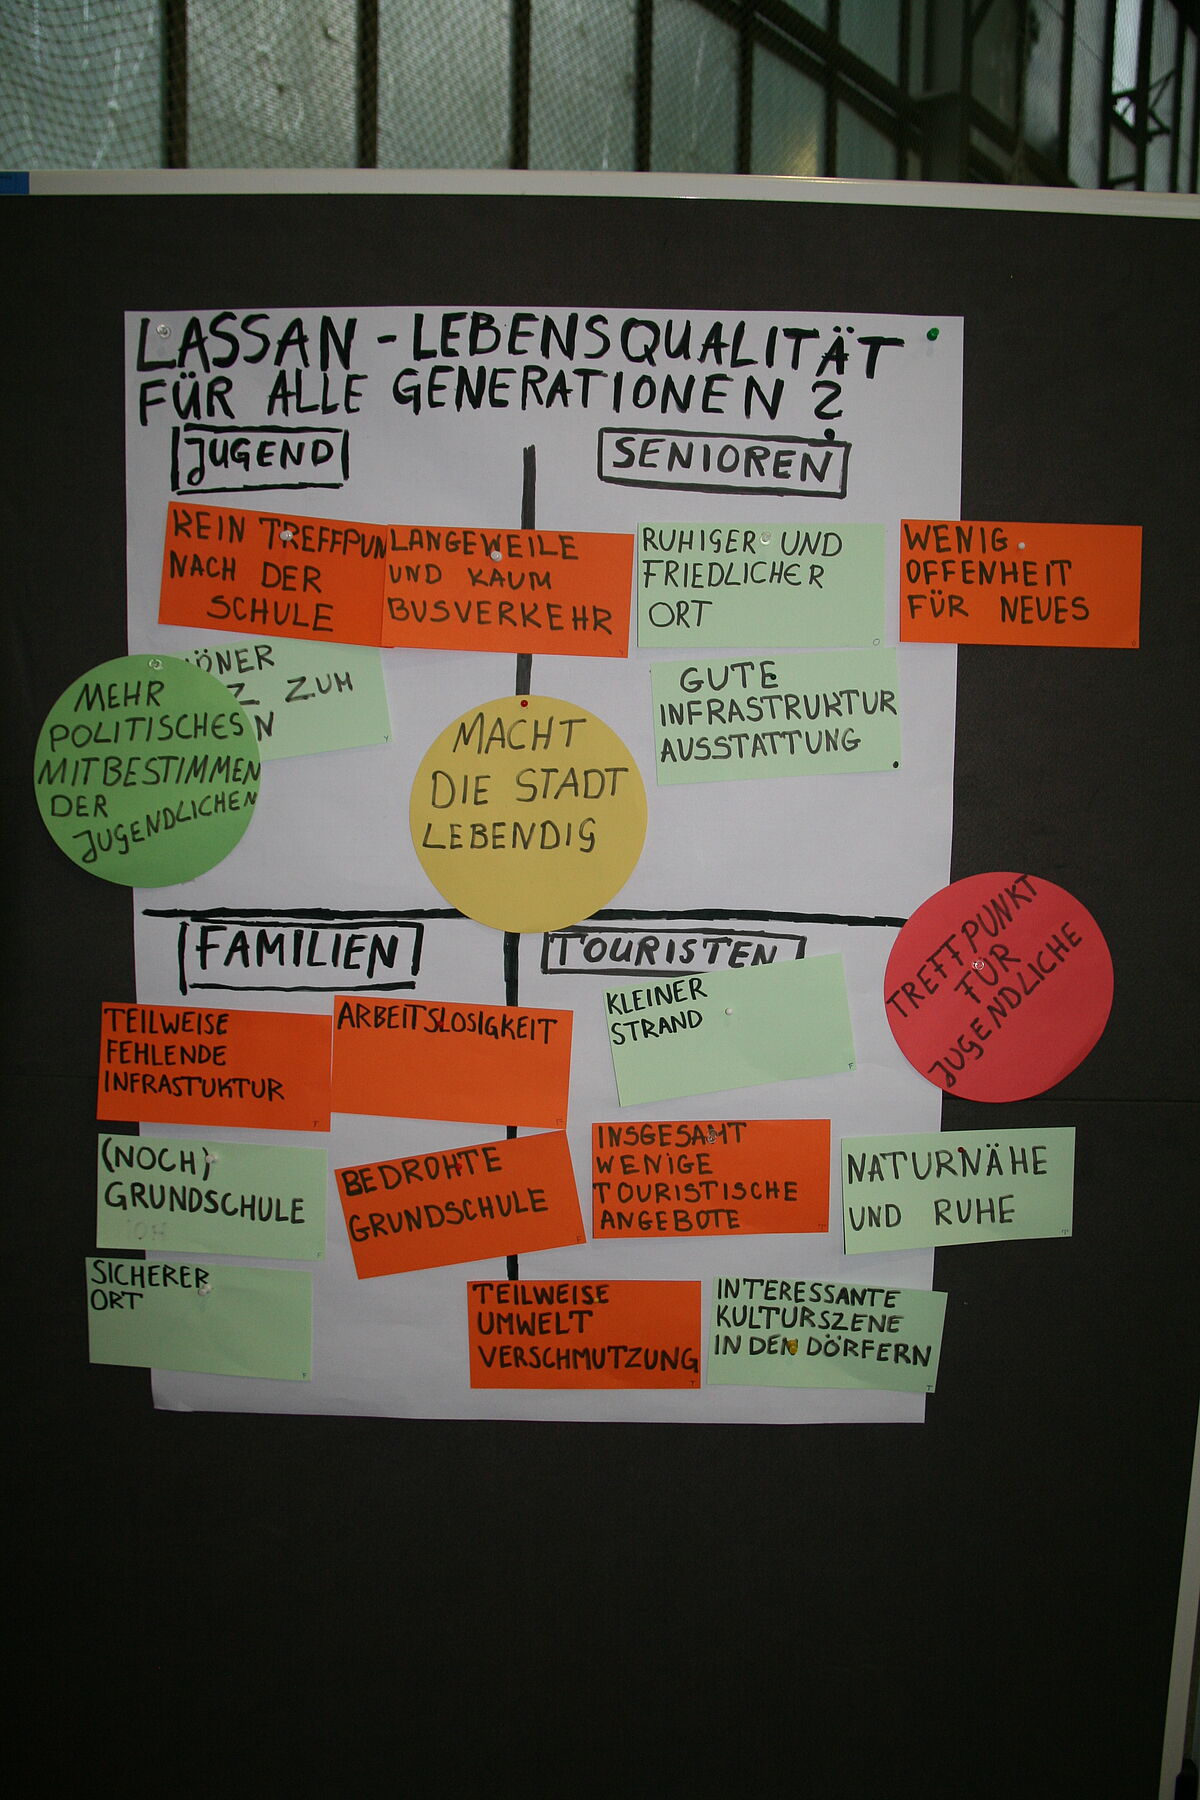 LASSAN - LEBENSQUALITÄT
FÜR ALLE GENERATIONEN ?
JUGEND
KEIN TREFFPUN
NACH DER
SCHULE
LANGEWEILE
UND KAUM
BUSVERKEHR
ÖNER
Z ZUM
N
MEHR
POLITISCHES
MITBESTIMMEN
DER
JUGENDLICHEN
SENIOREN
RUHIGER UND
FRIEDLICHER
ORT
WENIG
OFFENHEIT
FÜR NEUES
GUTE
INFRASTRUKTUR
AUSSTATTUNG
MACHT
DIE STADT
LEBENDIG
FAMILIEN
TEILWEISE
FEHLENDE
INFRASTUKTUR
ARBEITSLOSIGKEIT
(NOCH)
GRUNDSCHULE
BEDROHTE
GRUNDSCHULE
SICHERER
ORT
TOURISTEN
KLEINER
STRAND
TREFFPUNKT
FÜR
JUGENDLICHE
INSGESAMT
WENIGE
TOURISTISCHE
ANGEBOTE
NATURNÄHE
UND RUHE
TEILWEISE
UMWELT
VERSCHMUTZUNG
INTERESSANTE
KULTURSZENE
IN DEN DÖRFERN